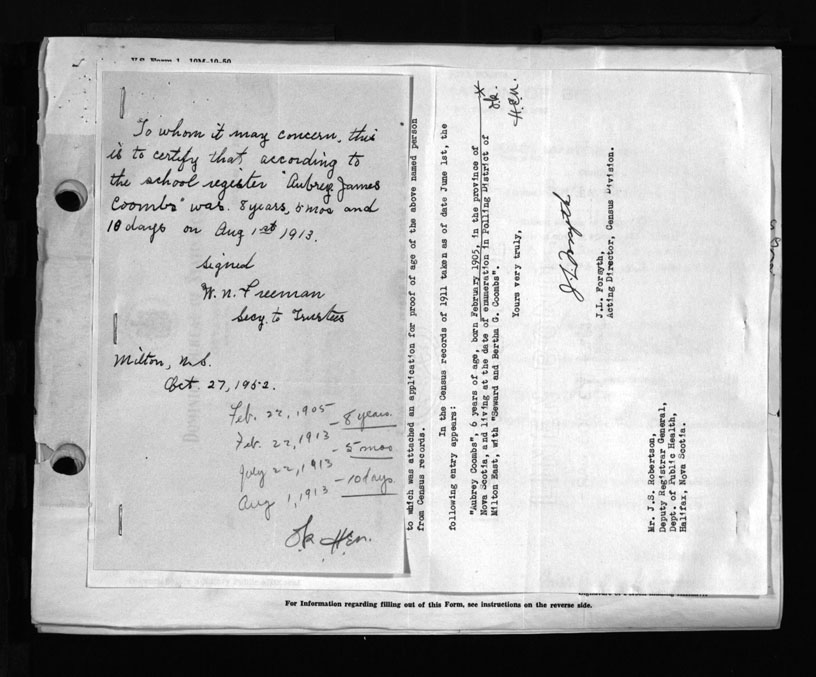 To whom it may concern, this
is to certify that, according to
the school register "Aubrey James
Coombs" was. 8 years, 5 mos and
10 days on Aug 1st 1913.
Signed
W. N. Freeman
Secy. to Trustees
Milton, N.S.
Oct 27, 1952.
Feb. 22, 1905
Feb. 22, 1913 - 8 years.
July 22, 1913 - 5 mos
Aug 1, 1913 - 10 days
Ok HEN.
to which was attached an application for proof of age of the above named person
from Census records.
In the Census records of 1911 taken as of date June 1st, the
following entry appears:
"Aubrey Coombs", 6 years of age, born February 1905, in the province of
Nova Scotia, and living at the date of enumeration in Polling District of
Milton East, with "Seward and Bertha G. Coombs".
X
Ok.
H.E.N.
Yours very truly,
J.L. Forsyth
J.L. Forsyth,
Acting Director, Census Division.
Mr. J.S. Robertson,
Deputy Registrar General,
Dept. of Public Health,
Halifax, Nova Scotia.
For Information regarding filling out of this Form, see instructions on the reverse side.